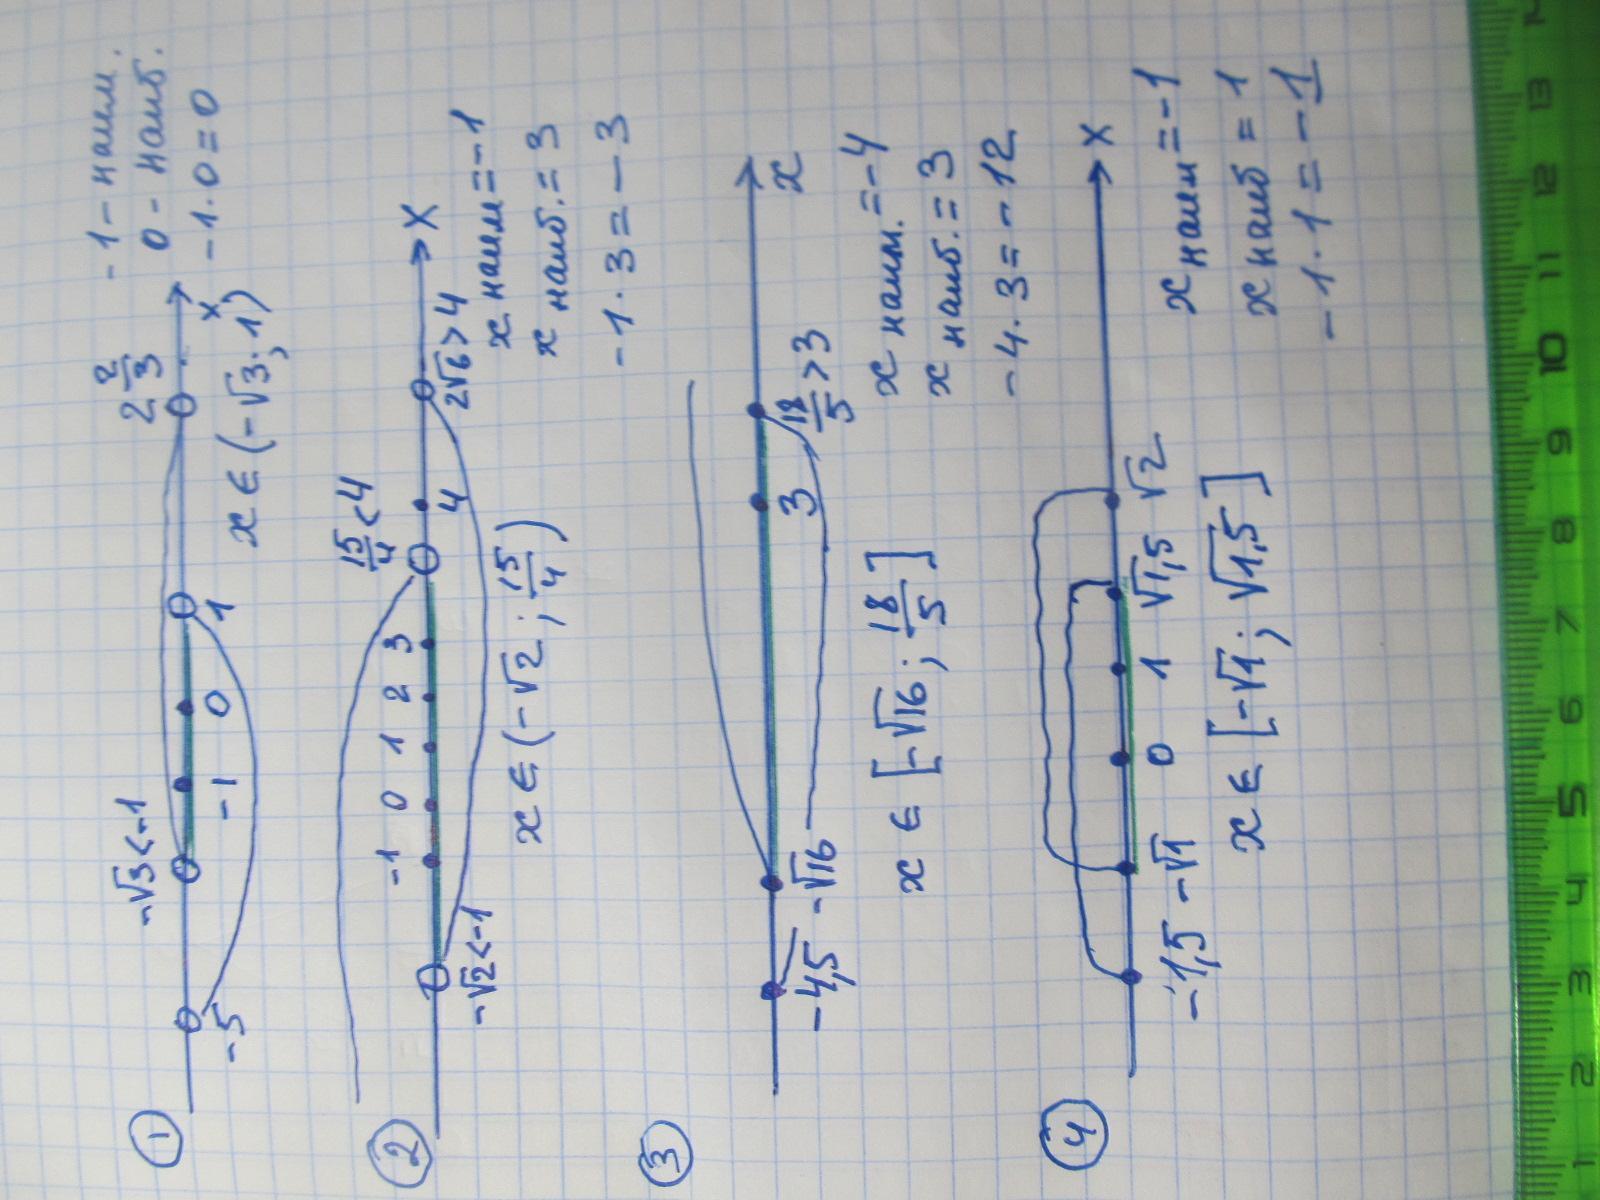 ①
-√3<-1
2 2/3
-5
-1
0
1
x
x ∈ (-√3; 1)
-1 - наим.
0 - наиб.
-1·0=0
②
15/4<4
-1 0 1 2 3
-√2<-1
4
2√6>4
x
x ∈ (-√2; 15/4)
x наим=-1
x наиб.=3
-1·3=-3
③
-4,5
-√16
3
18/5>3
x
x ∈ [-√16; 18/5]
x наим.=-4
x наиб.=3
-4·3=-12
④
-1,5 -√1 0 1 √1,5 √2
x
x ∈ [-√1; √1,5]
x наим=-1
x наиб=1
-1·1=-1
1 2 3 4 5 6 7 8 9 10 11 12 13